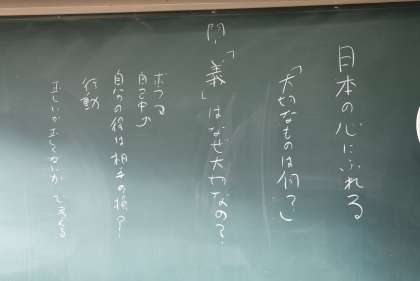 日本の心にふれる
「大切なものは何？」
問「義」はなぜ大切なの？
ボツる
自己中
自分の得は相手の損？
行動
正しいか正しくないかで考える